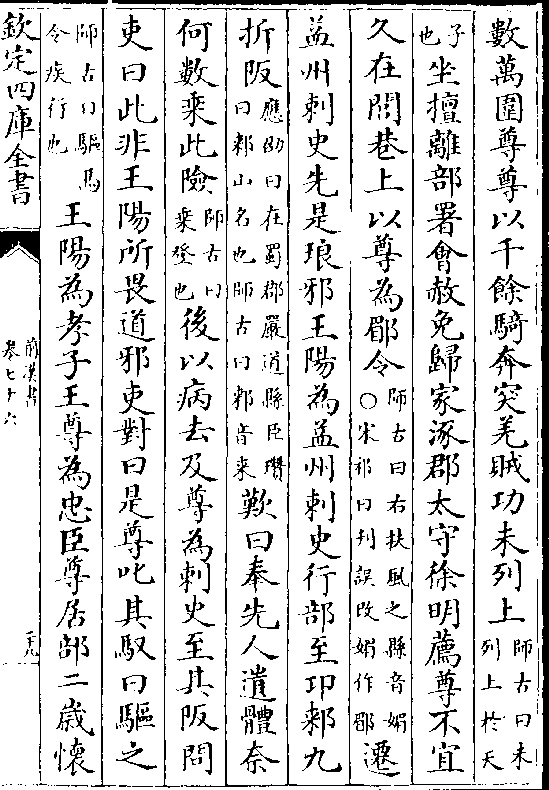 數萬圍尊尊以千餘騎奔突羌賊功未列上師古曰未列上於天
子也坐擅離部署會赦免歸家涿郡太守徐明薦尊不宜
久在閭巷上以尊為郿令師古曰右扶風之縣音媚○宋祁曰刋誤改媚作郿遷
益州刺史先是琅邪王陽為益州刺史行部至邛郲九
折阪應劭曰在蜀郡嚴道縣臣瓚曰郲山名也師古曰郲音来歎曰奉先人遺體奈
何數乘此險師古曰乗登也後以病去及尊為刺史至其阪問
吏曰此非王陽所畏道邪吏對曰是尊叱其馭曰驅之
師古曰驅馬令疾行也王陽為孝子王尊為忠臣尊居部二歲懷
欽定四庫全書
前漢書
卷七十六
二九